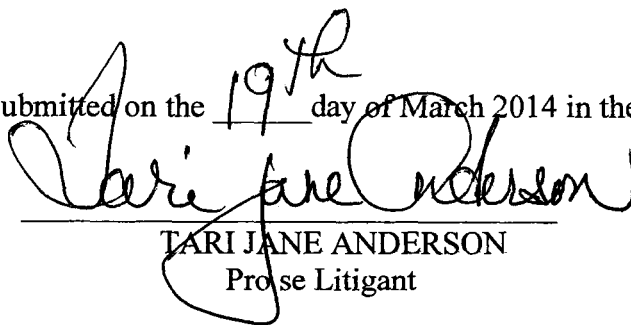 ubmitted on the 19th day of March 2014 in the
Tari Jane Anderson
TARI JANE ANDERSON
Pro se Litigant